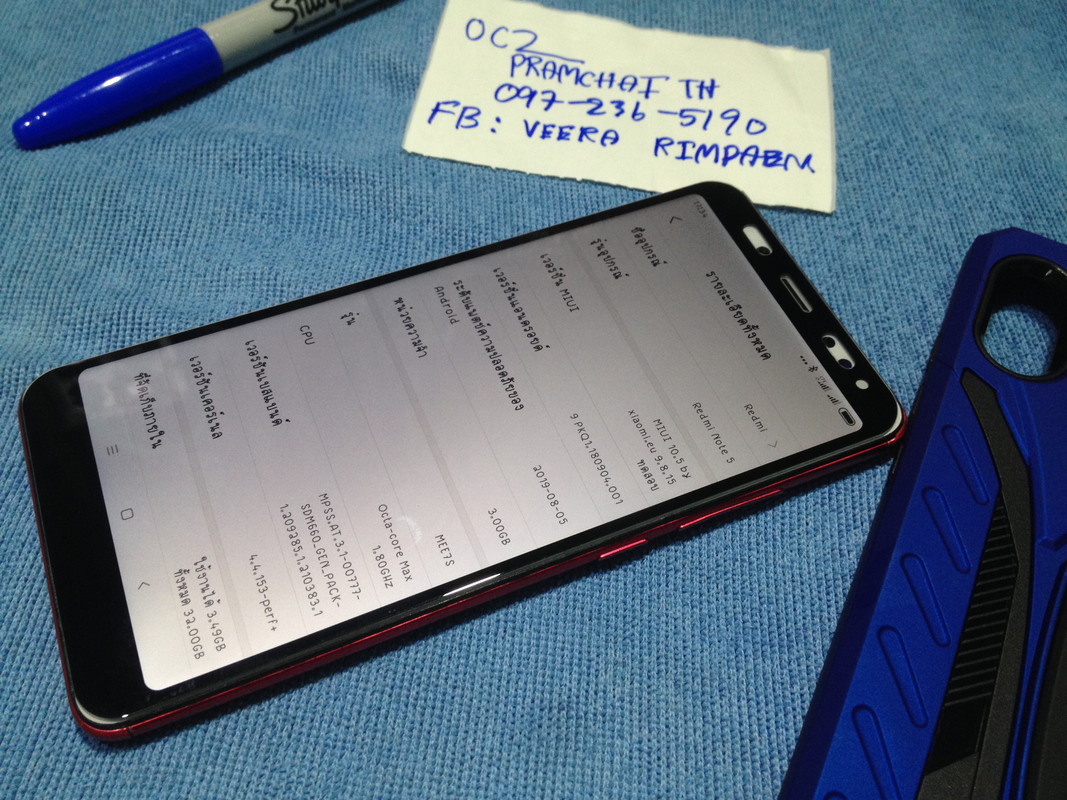 Sharpie
OCZ
PRAMCHAI TH
097-236-5190
FB: VEERA RIMPAEN
รายละเอียดทั้งหมด
ชื่ออุปกรณ์ Redmi
รุ่นอุปกรณ์ Redmi Note 5
เวอร์ชัน MIUI MIUI 10.5 by
xiaomi.eu 9.8.15
ทดสอบ
เวอร์ชันแอนดรอยด์ 9 PKQ1.180904.001
ระดับแพตช์ความปลอดภัยของ
Android 2019-08-05
หน่วยความจำ 3.00GB
รุ่น MEE7S
CPU Octa-core Max
1.80GHz
เวอร์ชันเบสแบนด์ MPSS.AT.3.1-00777-
SDM660_GEN_PACK-
1.209285.1.210383.1
เวอร์ชันเคอร์เนล 4.4.153-perf+
ที่จัดเก็บภายใน ใช้งานได้ 3.49GB
ทั้งหมด 32.00GB